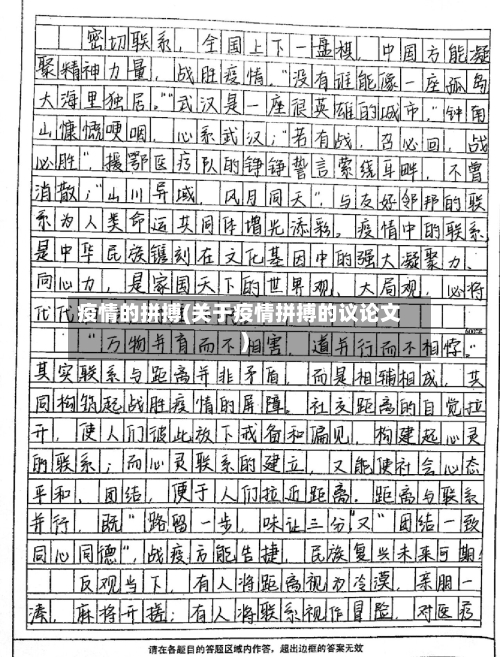 密切联系，全国上下一盘棋，中国方能凝
聚精神力量，战胜疫情，“没有谁能像一座孤岛
大海里独居。”“武汉是一座很英雄的城市，”钟南
山慷慨哽咽，心系武汉；“若有战，召必回，战
必胜”，援鄂医疗队的铮铮誓言萦绕耳畔，不曾
消散；“山川异域，风月同天”，与友好邻邦的联
系为人类命运共同体增光添彩。疫情中的联系，
是中华民族镌刻在文化基因中的强大凝聚力、
同心力，是家国天下的世界观、大局观，必将
代代
疫情的拼搏(关于疫情拼搏的议论文
)
“万物并育而不相害，道并行而不相悖。”
其实联系与距离并非矛盾，而是相辅相成，共
同构筑起战胜疫情的屏障。社交距离的自觉拉
开，使人们彼此放下戒备和偏见，构建起心灵
的联系；而心灵联系的建立，又能使社会心态
平和、团结，便于人们拉近距离。距离与联系
并行，既“路留一步，味让三分”又“团结一致
同心同德”，战疫方能告捷，民族复兴未来可期
反观当下，有人将距离视为冷漠，亲朋一
凑，麻将开搓；有人将联系视作冒险，对医疗
请在各题目的答题区域内作答，超出边框的答案无效